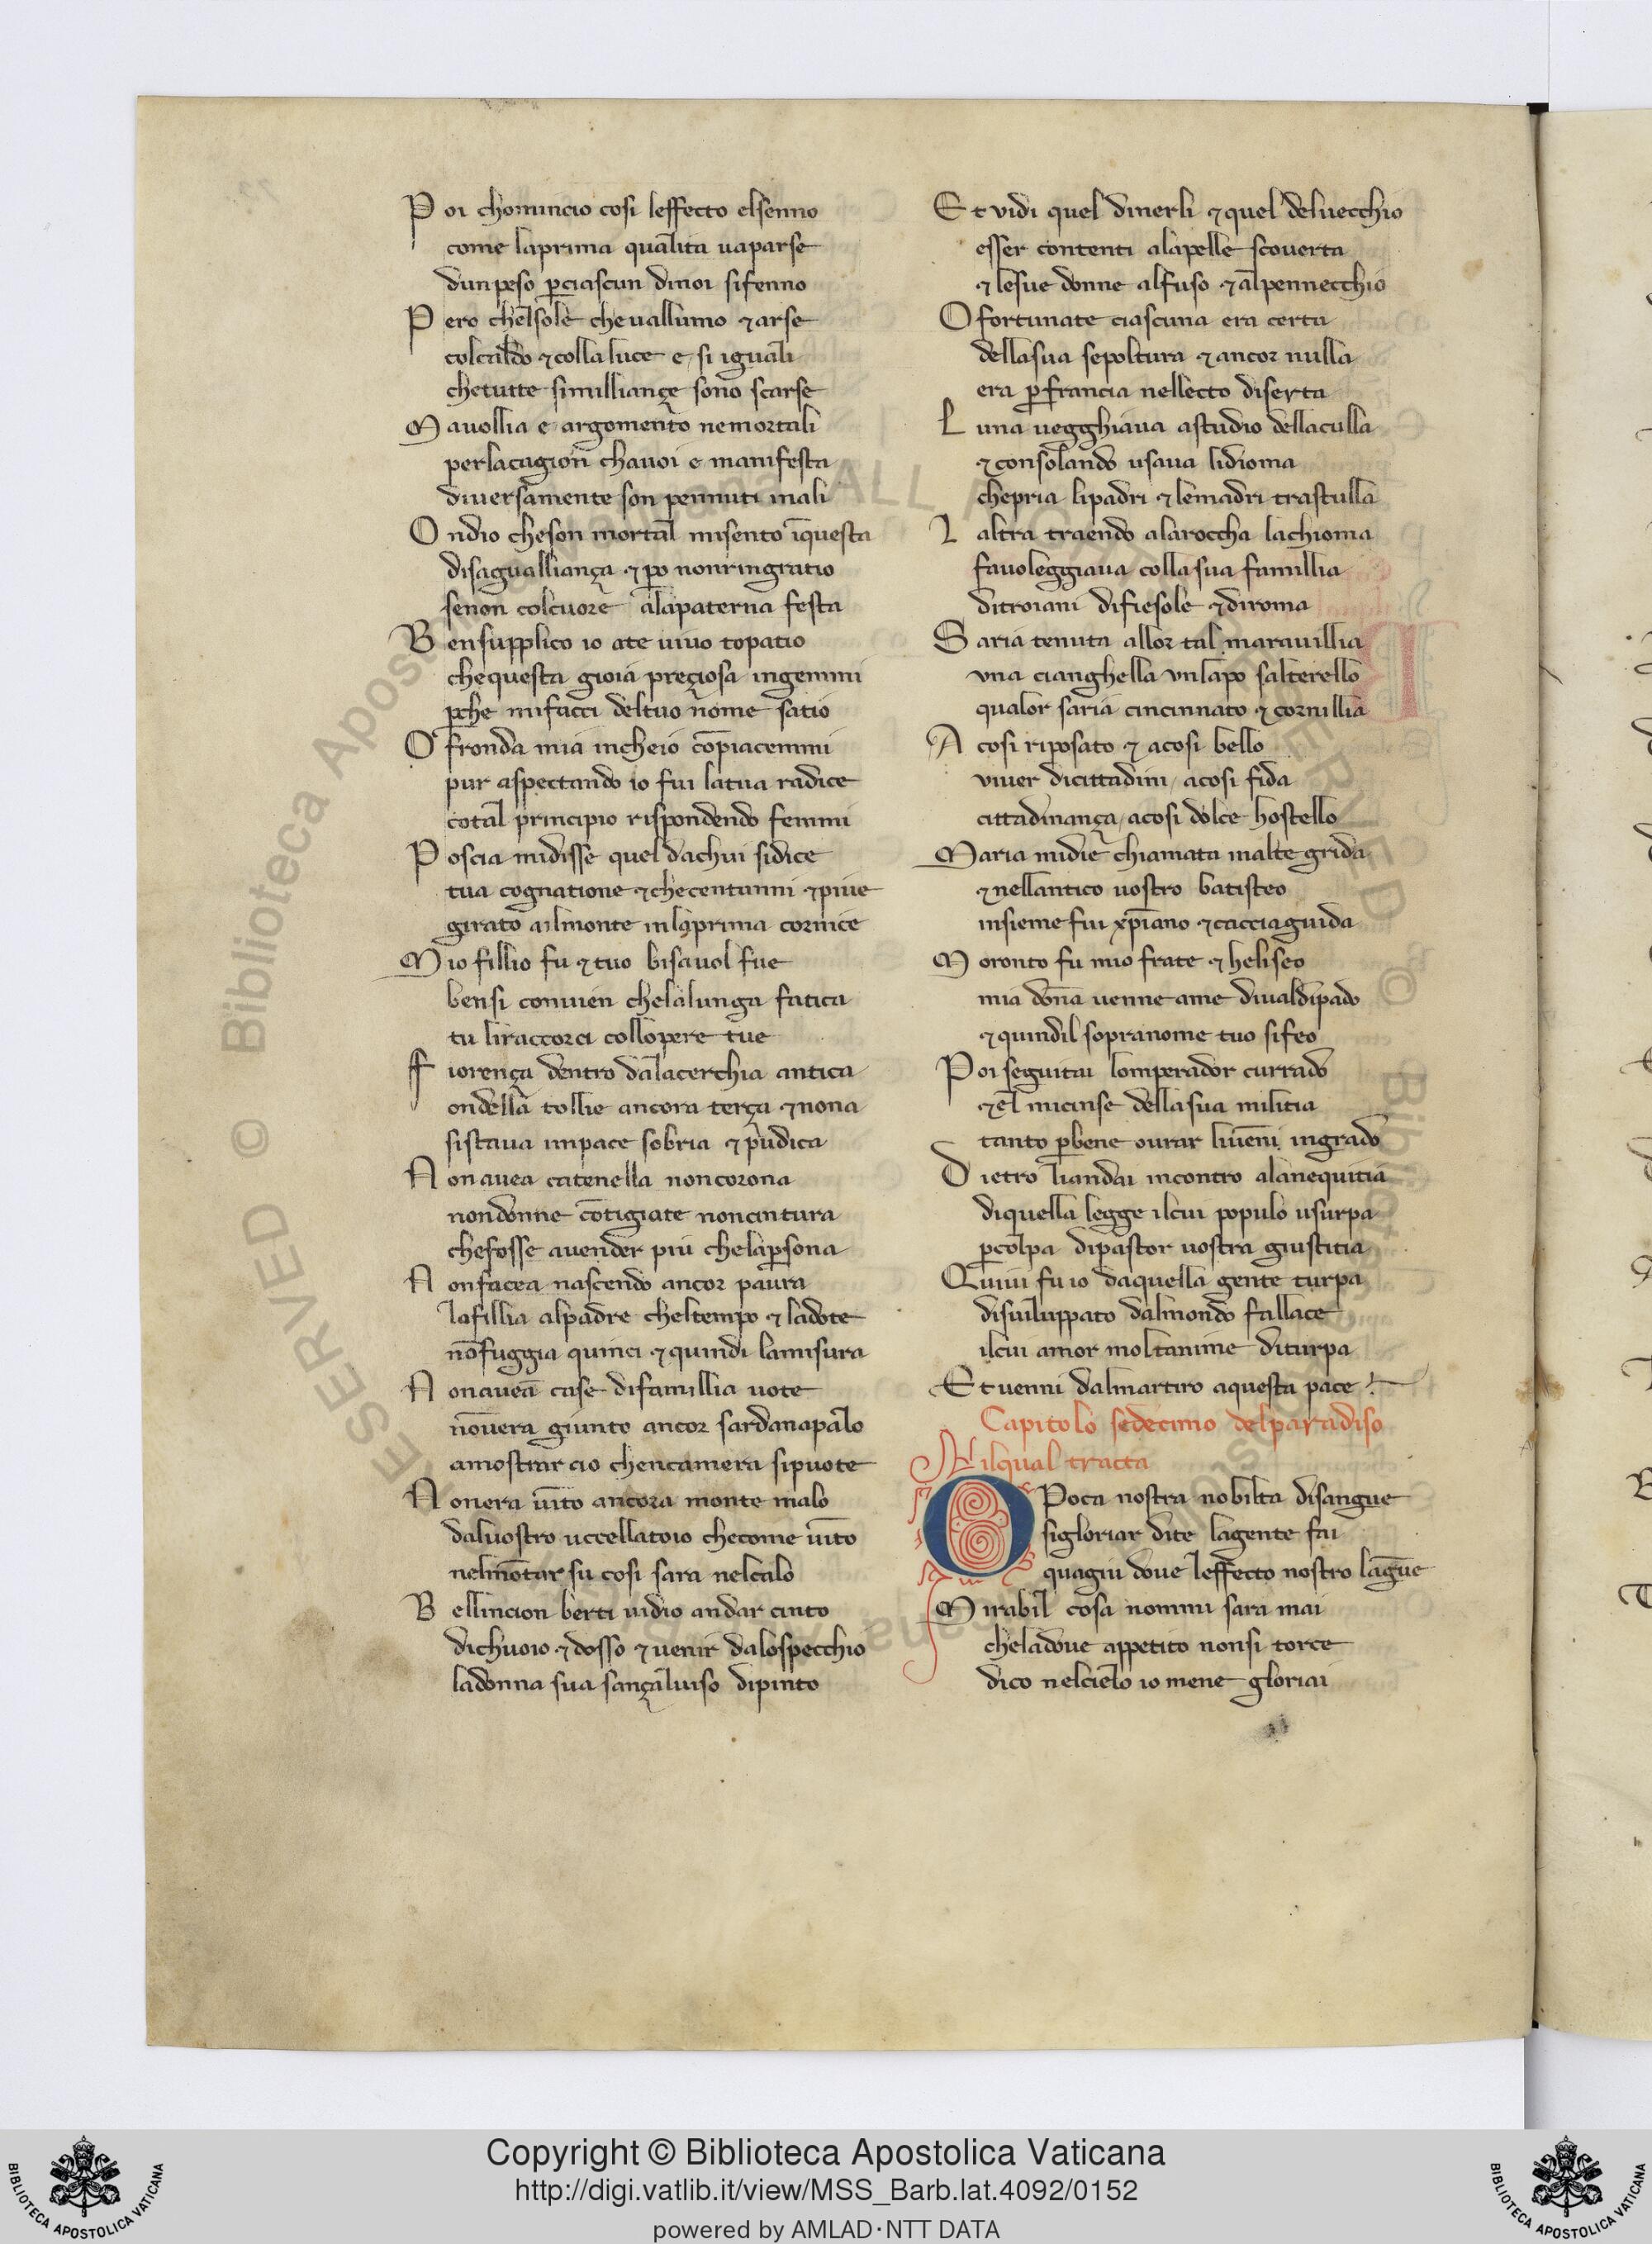 Poi chomincio cosi leffecto elsenno
come laprima qualita uaparse
dunpeso perciascun dinoi sifenno
Pero chelsole cheuallumo ⁊ arse
colcaldo ⁊ colla luce e si iguali
chetutte similliançe sono scarse
Mauollia e argomento nemortali
perlacagion chauoi e manifesta
diuersamente son pennuti inali
Ondio cheson mortal misento īquesta
disagualliança ⁊ ꝑo nonringratio
senon colcuore alapaterna festa
Bensupplico io ate uiuo topatio
chequesta gioia preçiosa ingemmi
ꝑche mifacci deltuo nome satio
O fronda mia incheio cōpiacemmi
pur aspectando io fui latua radice
cotal principio rispondendo femmi
Poscia midisse quel dachui sidice
tua cognatione ⁊ checentanni ⁊ piue
girato ailmonte inlaprima cornice
Mio fillio fu ⁊ tuo bisauol fue
bensi conuien chelalunga fatica
tu liraccorci collopere tue
Fiorença dentro dalacerchia antica
ondella tollie ancora terça ⁊ nona
sistaua inpace sobria ⁊ pudica
Nonauea catenella noncorona
nondonne cōtigiate noncintura
chefosse auender piu chelaꝑsona
Nonfacea nascendo ancor paura
lafillia alpadre cheltempo ⁊ ladote
nōfuggia quinci ⁊ quindi lamisura
Nonauea case difamillia uote
nōuera giunto ancor sardanapalo
amostrar cio chencamera sipuote
Nonera uīto ancora monte malo
daluostro uccellatoio checome uīto
nelmōtar su cosi sara nelcalo
Bellincion berti uidio andar cinto
dichuoio ⁊ dosso ⁊ uenir dalospecchio
ladonna sua sançaluiso dipinto
Et vidi quel dinerli ⁊ quel deluecchio
esser contenti alapelle scouerta
⁊ lesue donne alfuso ⁊ alpennecchio
O fortunate ciascuna era certa
dellasua sepoltura ⁊ ancor nulla
era ꝑfrancia nellecto diserta
Luna uegghiaua astudio dellaculla
⁊ consolando usaua lidioma
chepria lipadri ⁊ lemadri trastulla
Laltra traendo alaroccha lachioma
fauoleggiaua colla sua famillia
ditroiani difiesole ⁊ diroma
Saria tenuta allor tal marauillia
vna cianghella vnlapo salterello
qualor saria cincinnato ⁊ cornillia
A cosi riposato ⁊ acosi bello
viuer dicittadini / acosi fida
cittadinança / acosi dolce hostello
Maria midie chiamata inalte grida
⁊ nellantico uostro batisteo
insieme fui xp̄iano ⁊ cacciaguida
Moronto fu mio frate ⁊ heliseo
mia dōna uenne ame diualdipado
⁊ quindil sopranome tuo sifeo
Poi seguitai lomperador currado
⁊ el micinse dellasua militia
tanto ꝑbene ourar liuēni ingrado
Dietro liandai incontro alanequitia
diquella legge ilcui populo usurpa
ꝑcolpa dipastor uostra giustitia
Quiui fu io daquella gente turpa
disuiluppato dalmondo fallace
ilcui amor moltanime diturpa
Et uenni dalmartiro aquesta pace
Capitolo sedecimo delparadiso
Nilqual tracta
O Poca nostra nobilta disangue
sigloriar dite lagente fai
quagiu doue leffecto nostro lāgue
Mirabil cosa nonmi sara mai
cheladoue appetito nonsi torce
dico nelcielo io mene gloriai
Copyright © Biblioteca Apostolica Vaticana
http://digi.vatlib.it/view/MSS_Barb.lat.4092/0152
powered by AMLAD·NTT DATA
BIBLIOTECA APOSTOLICA VATICANA
BIBLIOTECA APOSTOLICA VATICANA